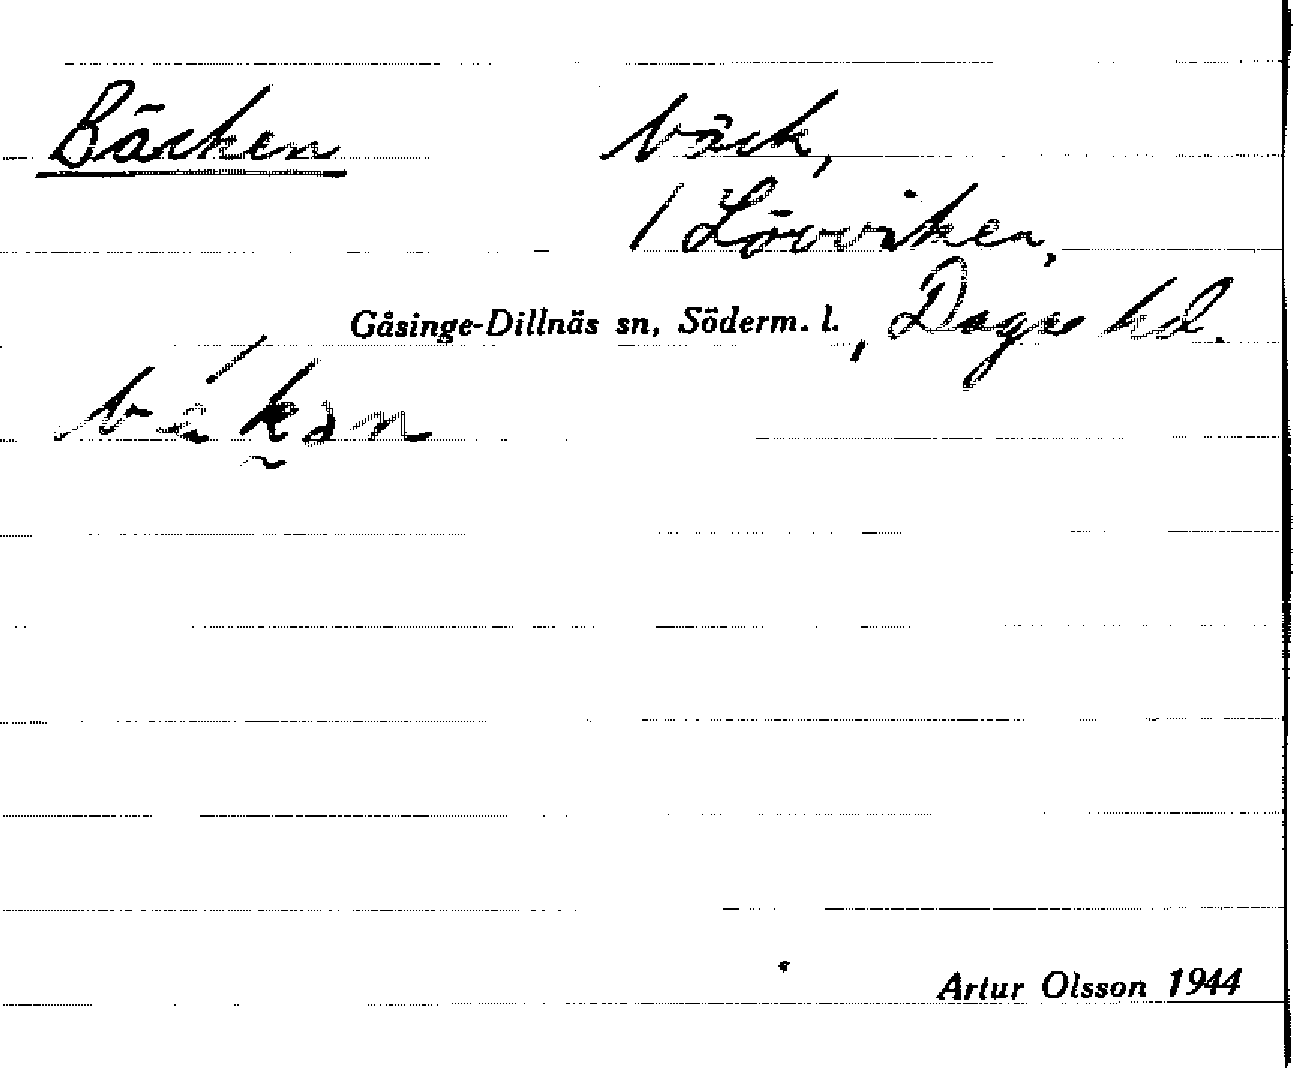 Bäcken bäck,
/ Lövviken,
Gåsinge-Dillnäs sn, Söderm. l., Daga hd.
Artur Olsson 1944